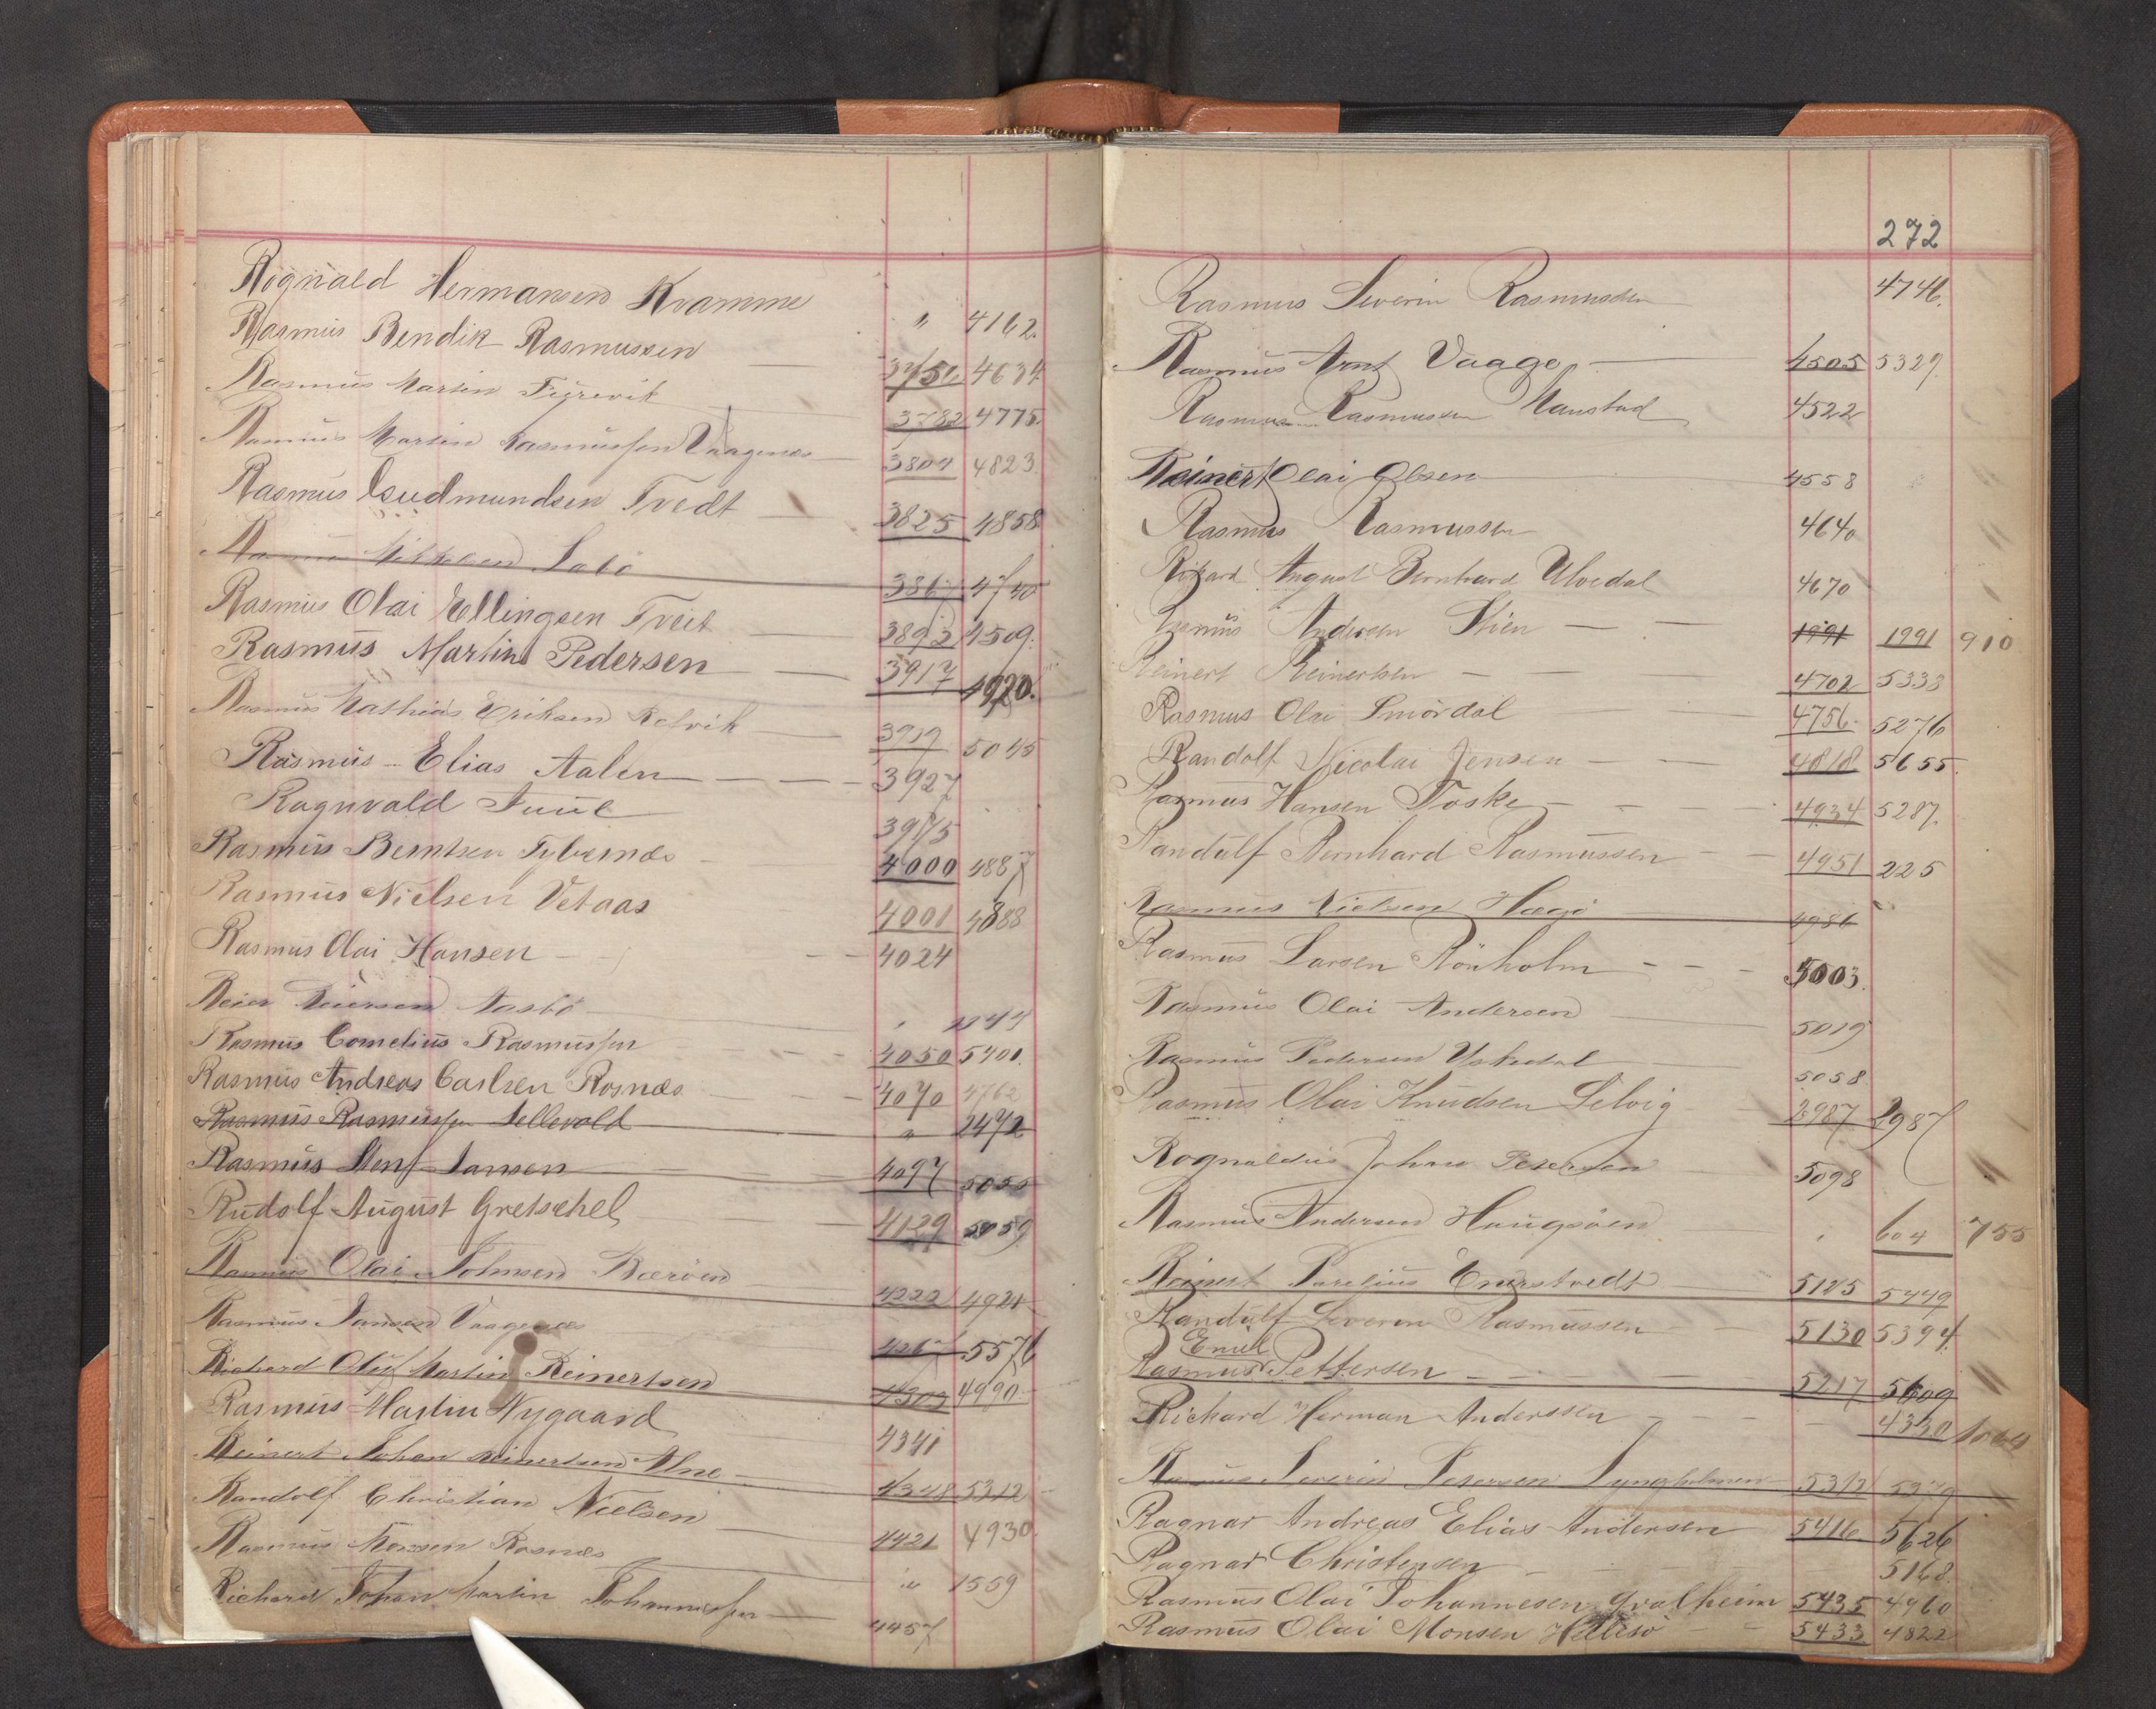 Rognald Hermansen Kvamme " 4162.
Rasmus Bendik Rasmussen — 3751 4634
Rasmus Martin 3782 4775.
Rasmus Martin Rasmussen Vaagenes — 3804 4823.
Rasmus Gudmundsen Tvedt — 3825 4858
Rasmus Sabö 3867 4740
Rasmus Olai Ellingsen Tveit — 3892 4509.
Rasmus Martin Pedersen — 3917 4920.
Rasmus Mathias Eriksen Rolvik — 3919 5045
Rasmus Elias Aalen — — — 3927
Ragnvald Juul 3975
Rasmus Berntsen Tybernæs 4000 4887
Rasmus Nielsen Vetaas 4001 4888
Rasmus Olai Hansen — — 4024
Reier Reiersen Aasbö
Rasmus Cornelius Rasmussen — — 4050 5401.
Rasmus Andreas Carlsen Rosnæs — — 4070 4762
Rasmus Rasmussen Sellevold " 2472
Rasmus Jansen 4097 5055
Rudolf August Gretschel 4129 5059
Rasmus Olai Johnsen Bæröen 4222 4921
Rasmus Jansen Vaagenæs 5576
Richard Oluf Martin Reinertsen 4303 4990
Rasmus Martin Nygaard 4341
Reinert Johan Reinertsen Alne 4348 5312
Randolf Christian Nielsen — 4421 4930.
Rasmus Monsen Rosnæs " 1559
Richard Johan Martin Johannessen — 4457
272
Rasmus Severin Rasmussen 4746.
Rasmus Arnt Vaage — 4505 5329.
Rasmus Rasmussen Maustad 4522
Reinert Olai Olsen 4558
Rasmus Rasmussen 4640
Rikard August Bernhard Ulvedal 4670
Rasmus Andersen Stien — — 1991 1991 910
Reinert Reinertsen — — 4702 5338
Rasmus Olai Smördal — 4756 5276
Randolf Nicolai Jensen — — 4818 5655.
Rasmus Hansen Toske — — — 4934 5287.
Randulf Bernhard Rasmussen — — 4951 225
Rasmus Nielsen 4986
Rasmus Larsen Rönholm — — — 5003.
Rasmus Olai Andersen 5019
Rasmus Pedersen 5058
Rasmus Olai Knudsen Selvig 2987 2987
Rognaldus Johan Petersen 5098
Rasmus Andersen Haugsöen 604 755
Reinert Enerstvedt 5125 5449
Randulf Severin Rasmussen — 5130 5394.
Emil
Rasmus Pettersen — — — 5217 5609
Richard Herman Anderssen — — — — 4330
Rasmus Severin Petersen Lyngholmen 5312 5379
Ragnar Andreas Elias Andersen 5416 5626
Ragnar Christensen 5168.
Rasmus Olai Johannesen Gralheim 5435 4960
Rasmus Olai Monsen Hellesö 5433 4822